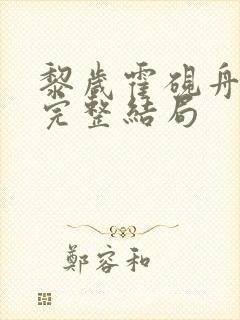 黎歲霍硯舟
完整結局
鄭容和